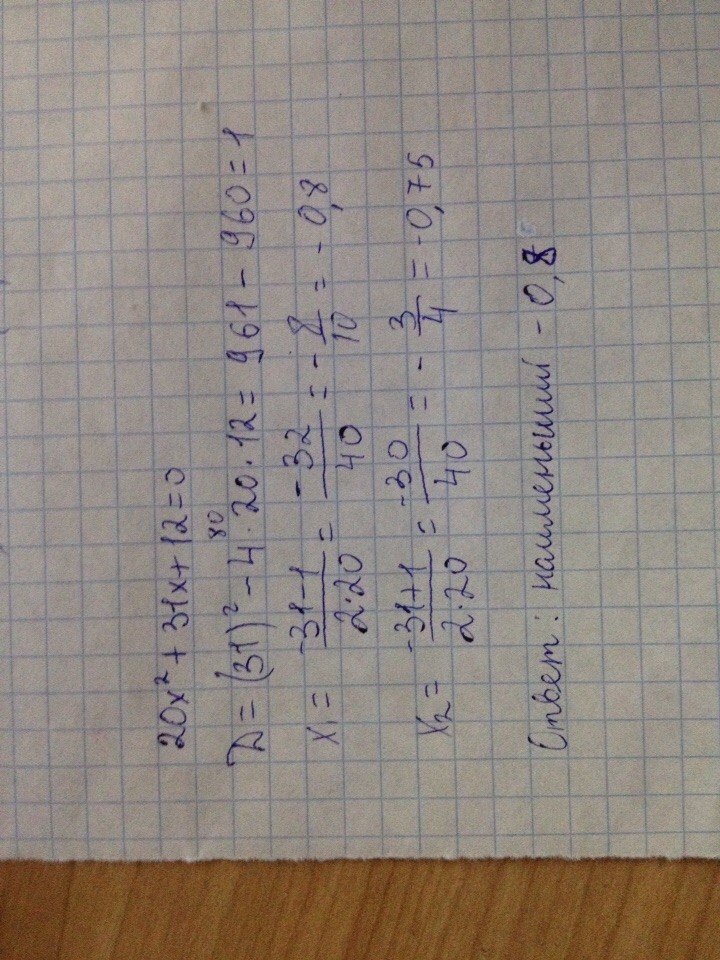 20x² + 31x + 12 = 0
D = (31)² - 4 · 20 · 12 = 961 - 960 = 1
80
x₁ = \frac{-31-1}{2·20} = \frac{-32}{40} = -\frac{8}{10} = -0,8
x₂ = \frac{-31+1}{2·20} = \frac{-30}{40} = -\frac{3}{4} = -0,75
Ответ: наименьший -0,8